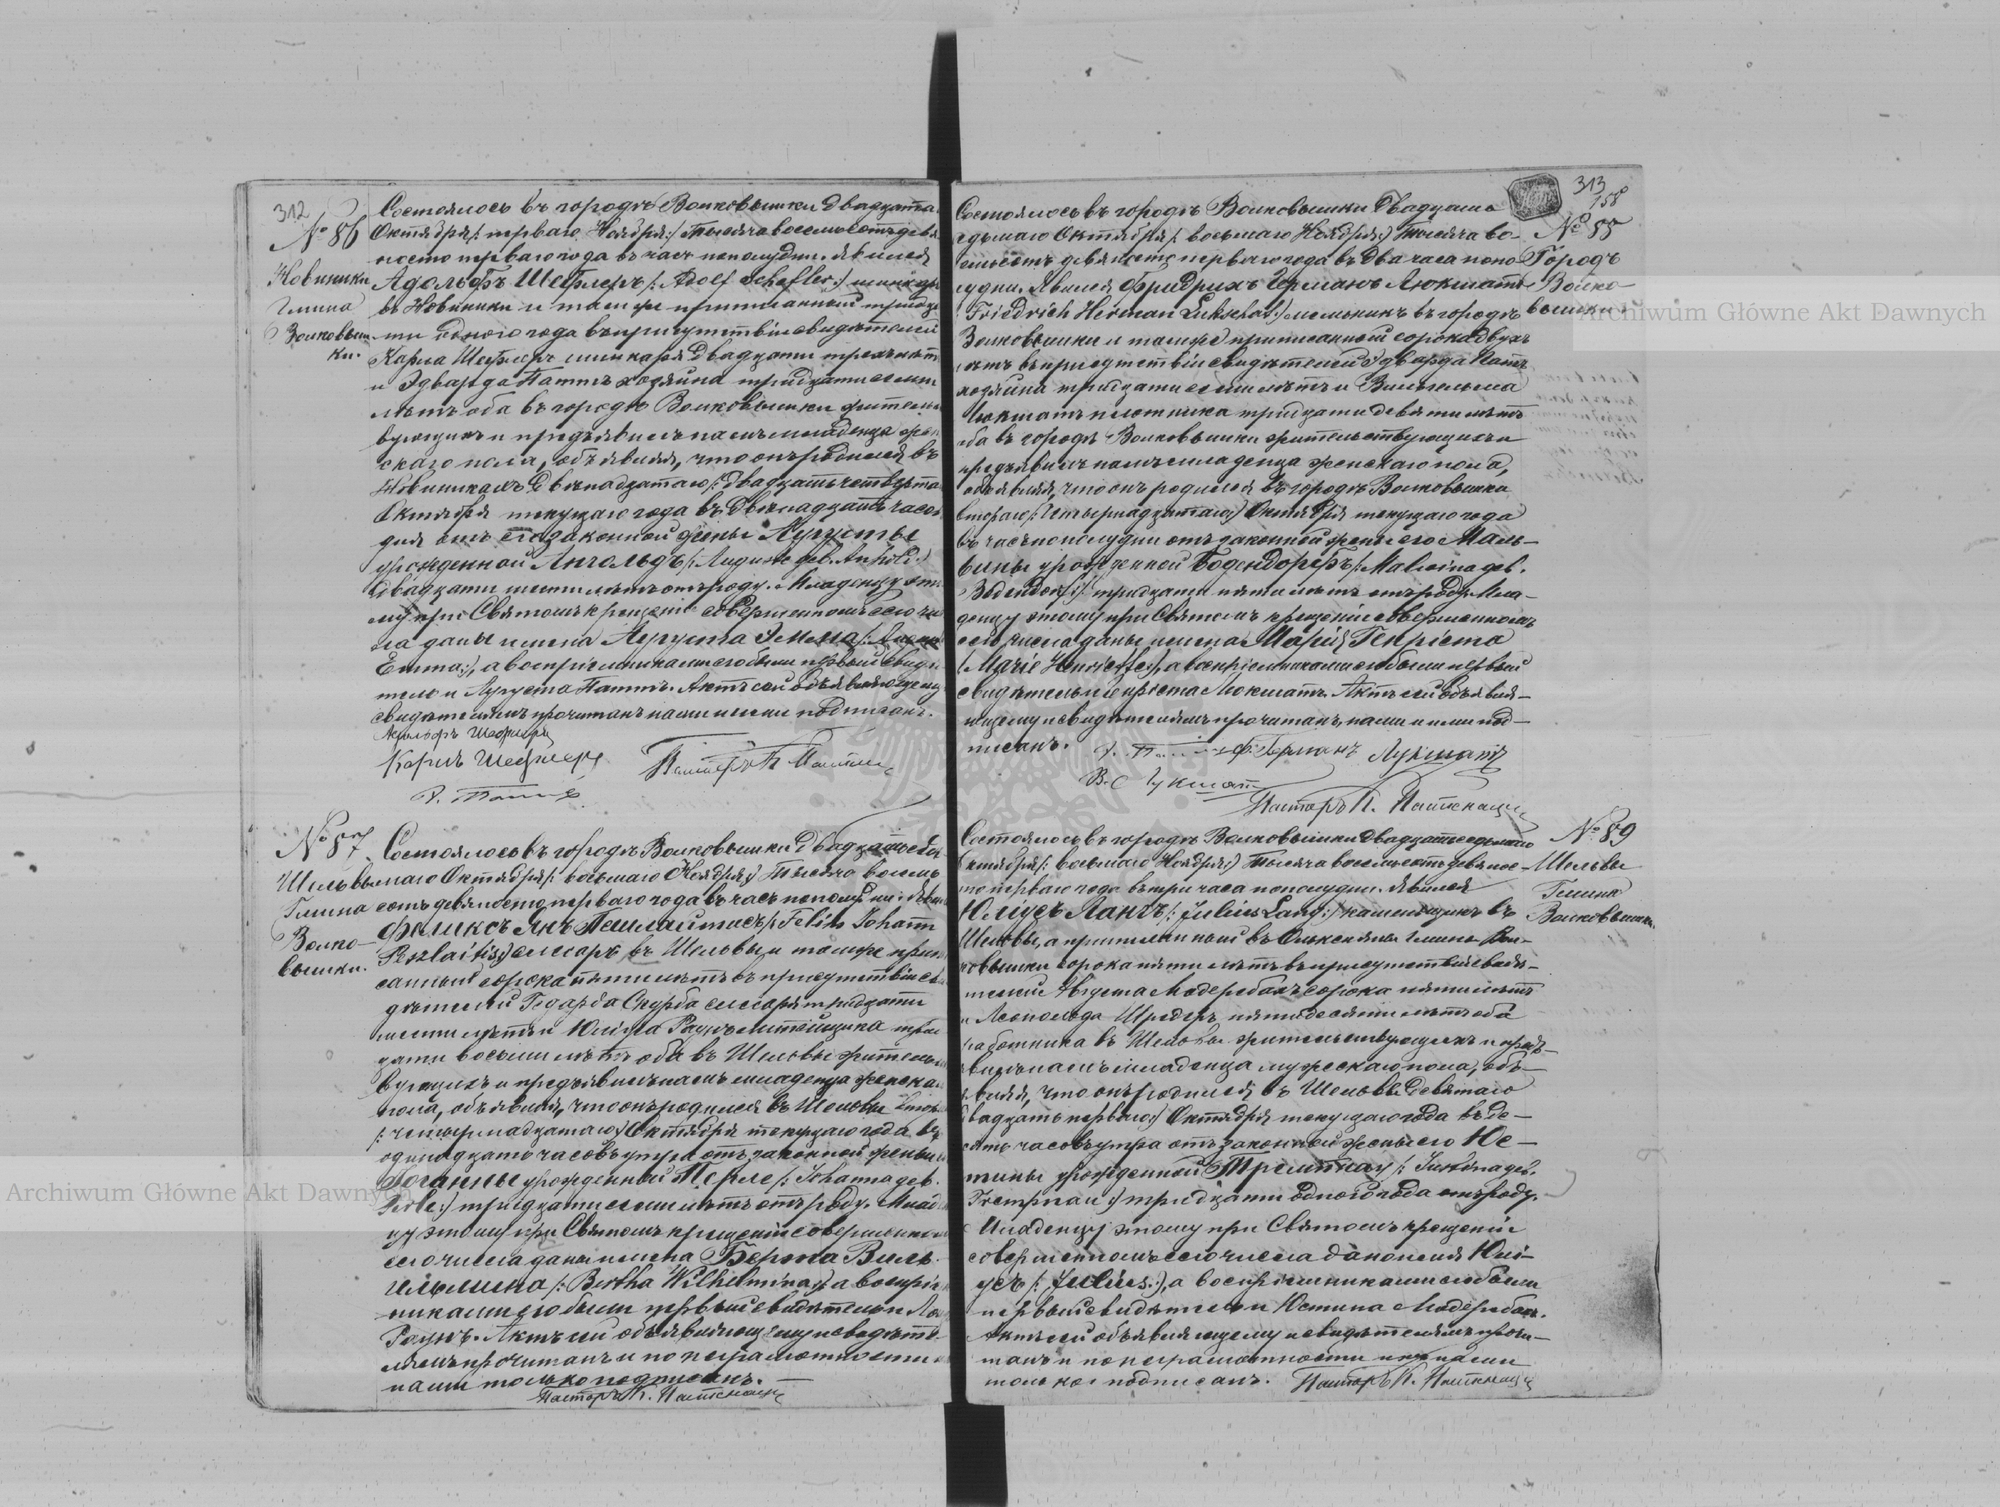 312
№ 86
Новиники
Гмина
Волковыш-
ки.
Состоялось въ городѣ Волковышки двадцата
Октября /: перваго Ноября:/ тысяча восемьсотъ девя
носто перваго года въ часъ пополудни. Явился
Адольфъ Шефлеръ /: Adolf Schefler:/ шинкарь
въ Новиники и тамже приписанный тридца
ти одного года въ присутствіи свидѣтелей
Карла Шефлеръ шинкаря двадцати трехъ лѣтъ
и Эдварда Паттъ хозяина тридцати семи
лѣтъ оба въ городѣ Волковышки жительст
вующихъ и предъявилъ намъ младенца жен
скаго пола, объявляя, что онъ родился въ
Новиникахъ двѣнадцатаго /: двадцать четверта
Октября текущаго года въ двѣнадцать часов
дня отъ его законной жены Аугусты
урожденной Ангольдъ
двадцати шести лѣтъ отъ роду. Младенцу это
му при Святомъ крещеніи совершенномъ сего чи
сла даны имена Аугуста Эмма
Emma:/, а воспріемниками его были первый свидѣ
тель и Аугуста Паттъ. Актъ сей объявляющему
свидѣтелямъ прочитанъ нами и ими подписанъ.
Адольфъ Шефлеръ
Карлъ Шефлеръ
Пасторъ К.
№ 87
Шельвы
Гмина
Волко-
вышки.
Состоялось въ городѣ Волковышки двадцать седь
маго Октября /: восьмаго Ноября:/ тысяча восемь
сотъ девяносто перваго года въ часъ пополудни. Яви
Феликсъ Янъ Пешлайтисъ /: Felix Johann
Peszlaitis:/ слесарь въ Шельвы и тамже припи
санный сорока пяти лѣтъ въ присутствіи сви
дѣтелей Годарда Скурба слесаря тридцати
шести лѣтъ и Юліуса Раухъ литейщика трид
цати восьми лѣтъ оба въ Шельвы жительст
вующихъ и предъявилъ намъ младенца женска
пола, объявляя, что онъ родился въ Шельвы втор
/: четырнадцатаго:/ Октября текущаго года въ
одинадцать часовъ утра отъ законной жены
Іоганны урожденной Перле /: Johanna geb.
Perle:/ тридцати семи лѣтъ отъ роду. Млад
цу этому при Святомъ крещеніи совершенном
сего числа даны имена Берта Виль-
гельмина /: Bertha Wilhelmina:/ а воспріем
никами его были первый свидѣтель и
Раухъ. Актъ сей объявляющему и свидѣте-
лямъ прочитанъ и по неграмотности
нами только подписанъ.
Пасторъ К.
313
158
№ 88
Городъ
Волко-
вышки
Состоялось въ городѣ Волковышки двадцать
седьмаго Октября /: восьмаго Ноября:/ тысяча во-
семьсотъ девяносто перваго года въ два часа попо
лудни. Явился Фридрихъ Германъ Люкшатъ
/: Friedrich Herman Lukschat:/ мельникъ въ городѣ
Волковышки и тамже приписанный сорока двухъ
лѣтъ въ присутствіи свидѣтелей Эдварда Паттъ
хозяина тридцати семи лѣтъ и Вильгельма
Люкшатъ плотника тридцати девяти лѣтъ
оба въ городѣ Волковышки жительствующихъ и
предъявилъ намъ младенца женскаго пола,
объявляя, что онъ родился въ городѣ Волковышки
втораго /: четырнадцатаго:/ Октября текущаго года
въ часъ пополудни отъ законной жены его Маль-
вины урожденной Бодендорфъ /: Malwina geb.
Bodendorf:/ тридцати пяти лѣтъ отъ роду. Мла-
денцу этому при Святомъ крещеніи совершенномъ
сего числа даны имена Марія Генріета
/: Marie Henriette:/, а воспріемниками его были первый
свидѣтель и Генріета Люкшатъ. Актъ сей объявля-
ющему и свидѣтелямъ прочитанъ, нами и ими под-
писанъ.
Ф. Германъ Лукшатъ
В. Лукшатъ
Пасторъ К.
№ 89
Шельвы
Гмина
Волковышки.
Состоялось въ городѣ Волковышки двадцать седьмаго
Октября /: восьмаго Ноября:/ тысяча восемьсотъ девянос-
то перваго года въ три часа пополудни. Явился
Юліусъ Лангъ /: Julius Lang:/ каменщикъ въ
Шельвы, а приписанный въ гмине Вол-
ковышки сорока пяти лѣтъ въ присутствіи свидѣ-
телей Августа Мадерсбахъ сорока пяти лѣтъ
и Леопольда Шредеръ пятидесяти лѣтъ оба
работника въ Шельвы жительствующихъ и предъ-
явилъ намъ младенца мужескаго пола, объ-
являя, что онъ родился въ Шельвы девятаго
двадцать перваго:/ Октября текущаго года въ де-
сять часовъ утра отъ законной жены его Юс-
тины урожденной Тремпнау /: Justina geb.
Trempnau:/ тридцати одного года отъ роду.
Младенцу этому при Святомъ крещеніи
совершенномъ сего числа дано имя Юлі-
усъ /: Julius:/, а воспріемниками его были
первый свидѣтель и Юстина Мадерсбахъ.
Актъ сей объявляющему и свидѣтелямъ прочи-
танъ и по неграмотности ихъ нами
только подписанъ. Пасторъ К.
Archiwum Główne Akt Dawnych
Archiwum Główne Akt Dawnych